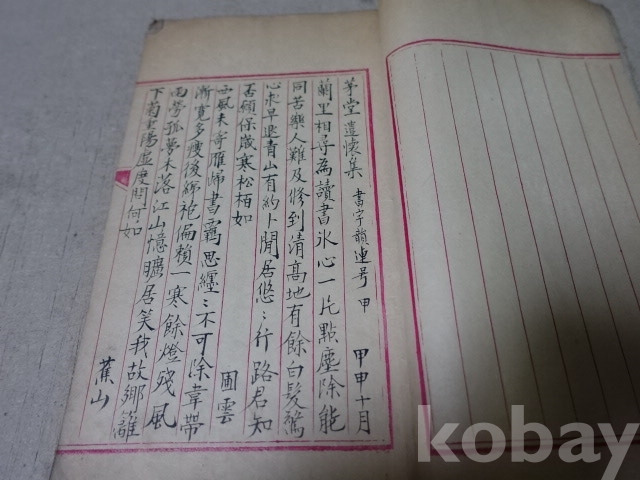 茅堂遣懷集 書字韻連号 甲 甲申十月
蘭里相尋為讀書氷心一片點塵除能
同苦樂人難及修到清高地有餘白髮驚
心求早退青山有約卜閒居悠〻行路君知
否須保歲寒松栢如 圃雲
西風未寄雁歸書羈思纏〻不可除韋帶
漸寬多瘦後綈袍偏賴一寒餘燈殘風
雨勞孤夢木落江山憶曠居笑我故鄉籬
下菊重陽虛度問何如
蕉山
kobay